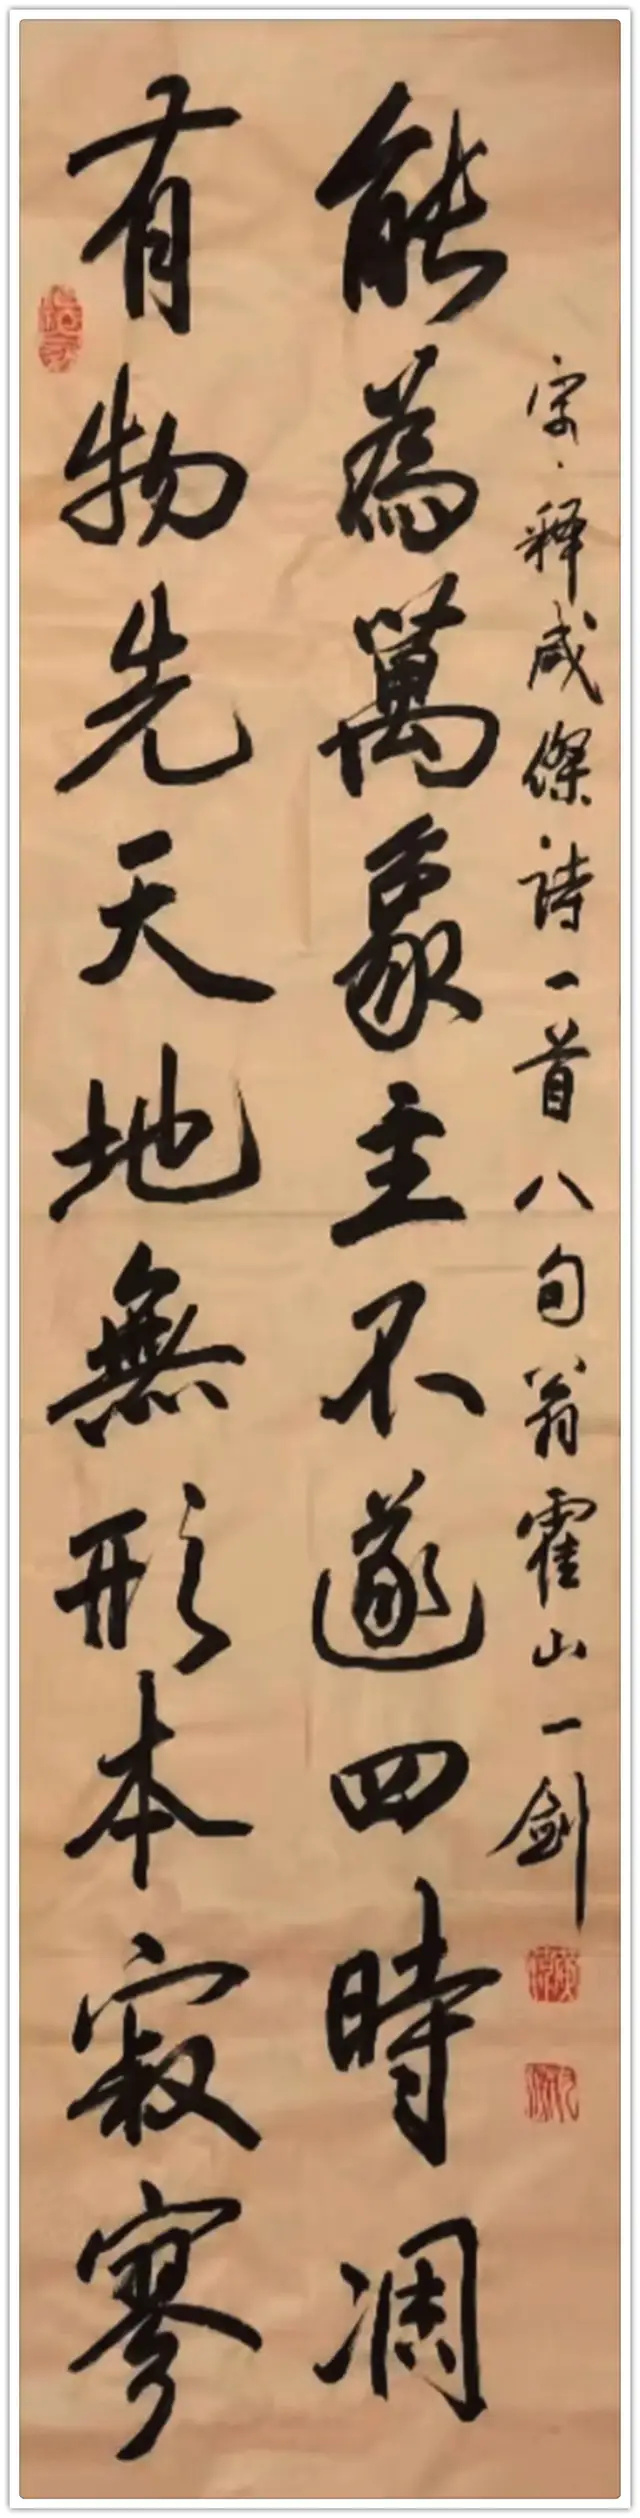 有物先天地無形本寂寥
能為萬象主不遂四時凋
宋、释咸傑詩一首八句翁霍山一剑